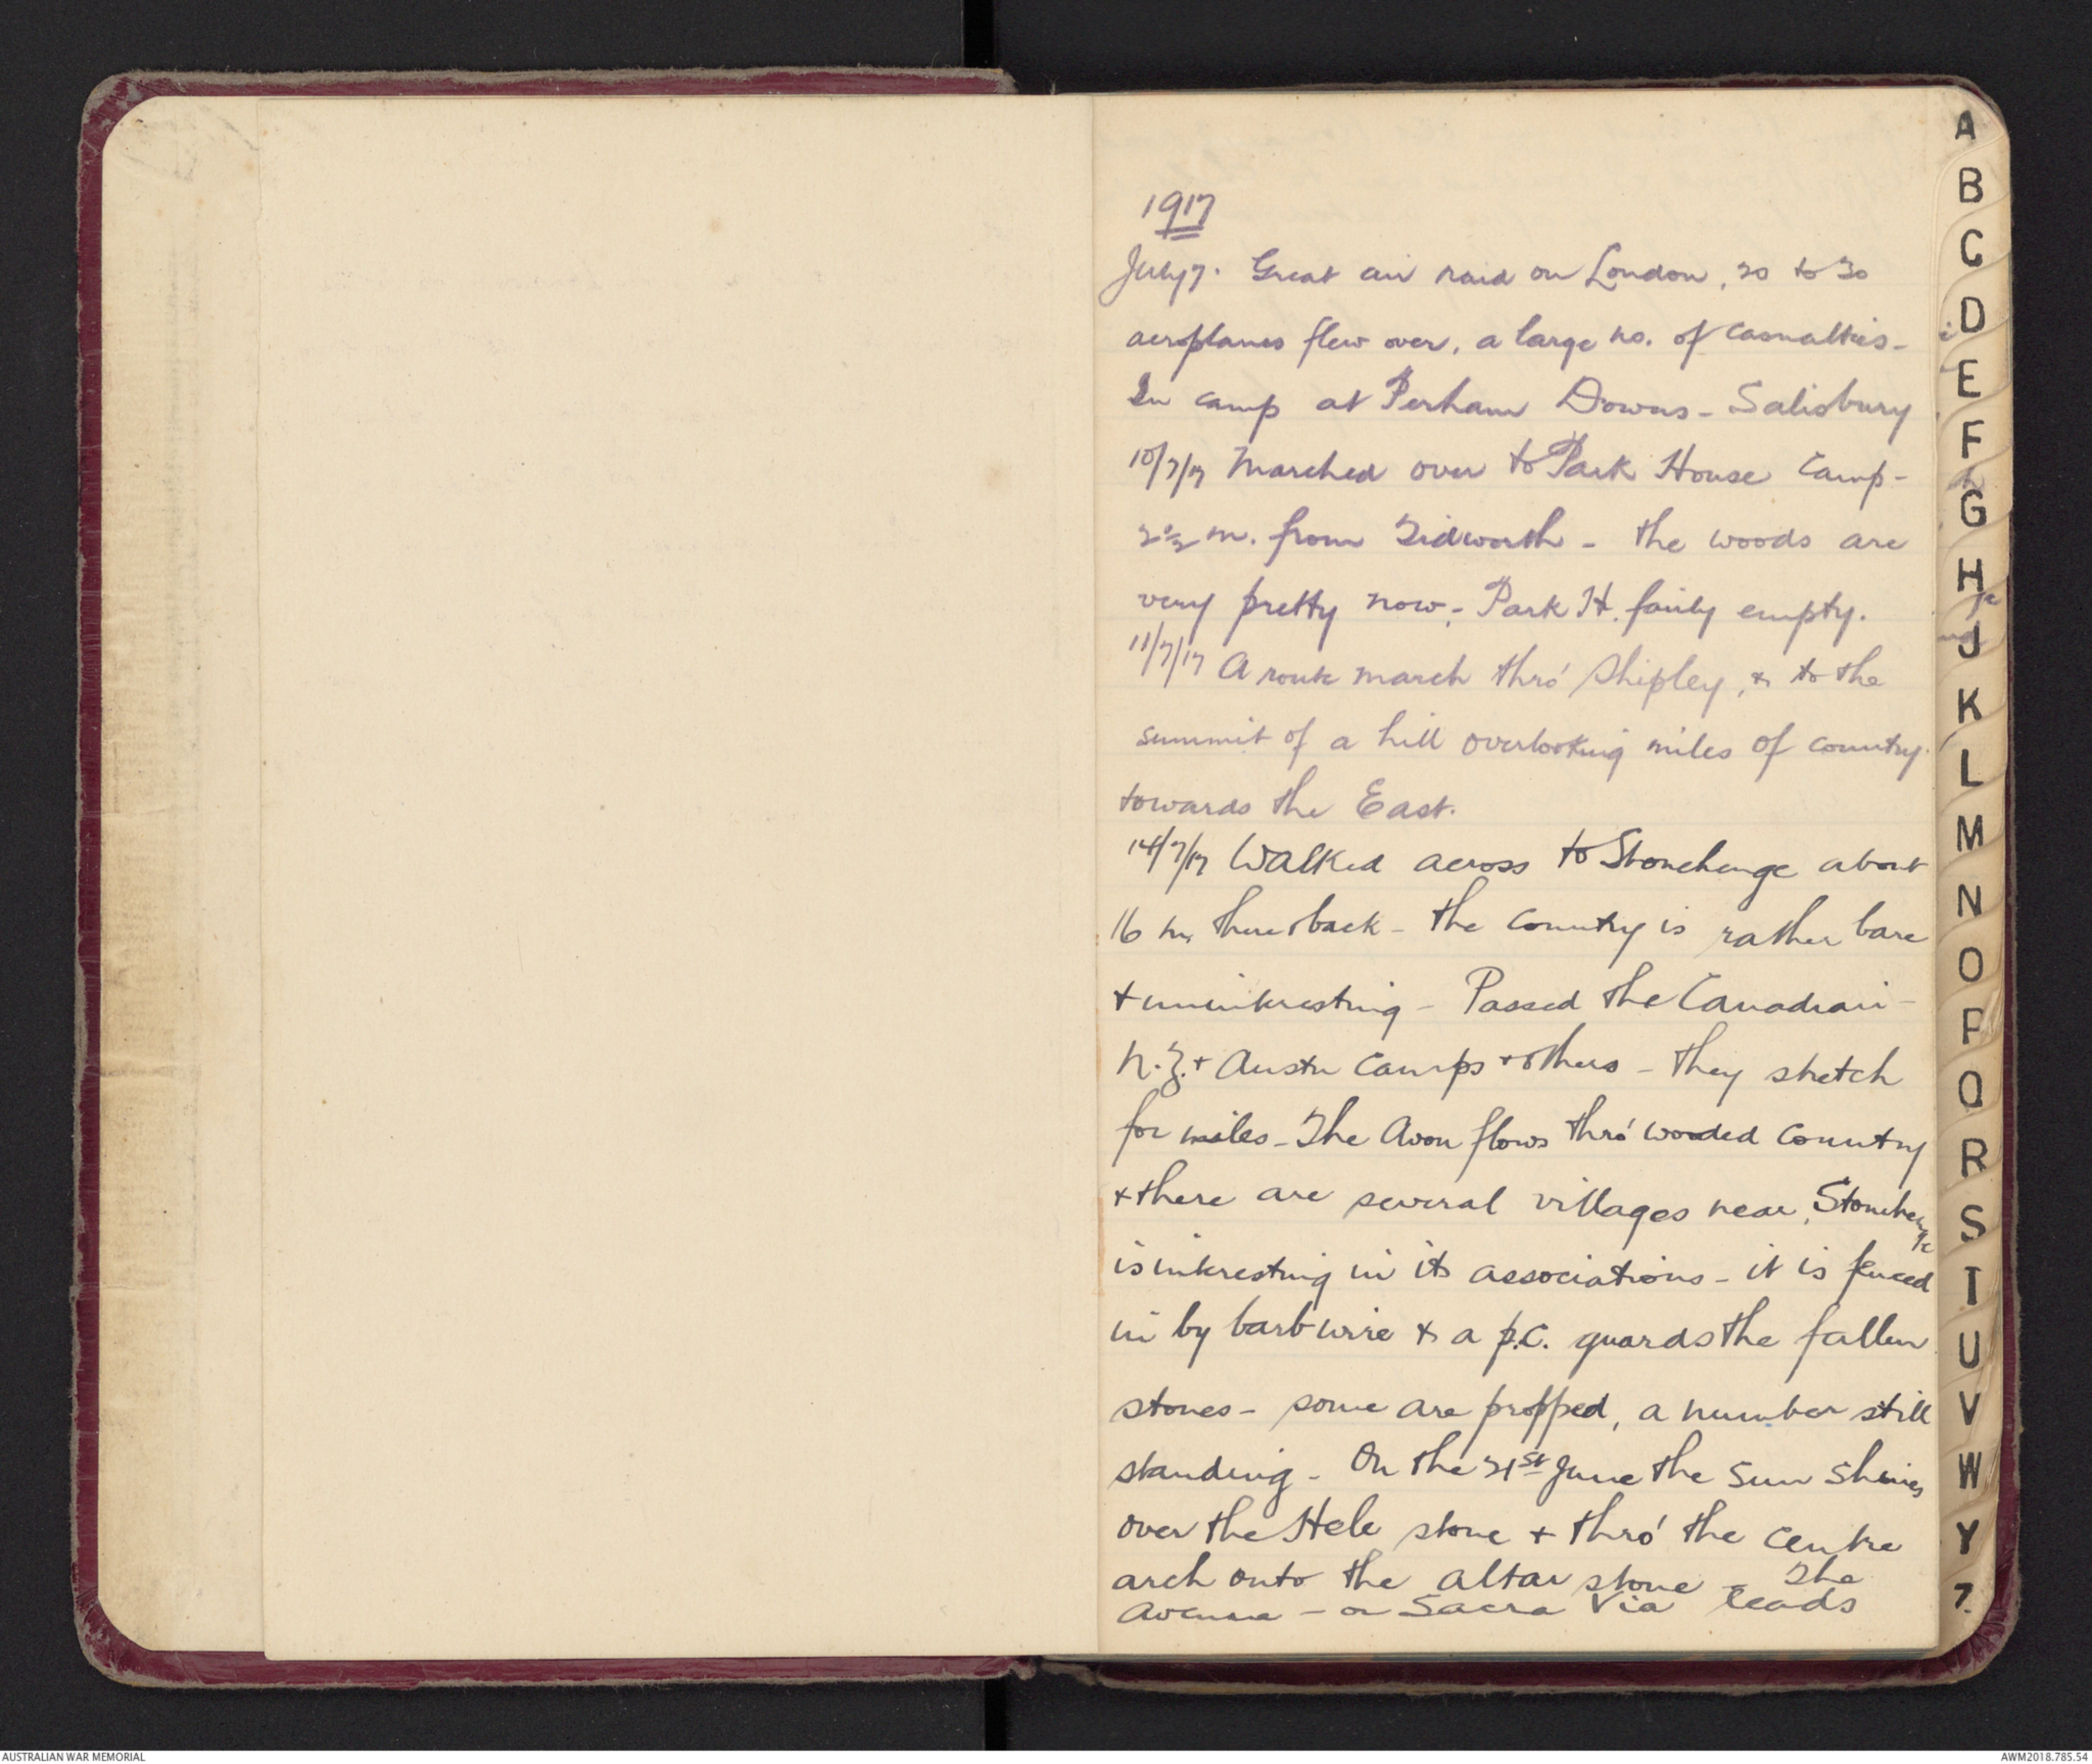 1917
July 7. Great air raid on London, 20 to 30
aeroplanes flew over, a large no. of casualties -
In camp at Perham Downs - Salisbury
10/7/17 Marched over to Park House Camp -
2½ m. from Tidworth - the woods are
very pretty now - Park H. fairly empty.
11/7/17 A route march thro' Shipley, & to the
summit of a hill overlooking miles of country
towards the East.
14/7/17 Walked across to Stonehenge about
16 m. there & back - the country is rather bare
& uninteresting - Passed the Canadian -
N.Z. & Austn Camps & others - they stretch
for miles - The Avon flows thro' wooded country
& there are several villages near, Stonehenge
is interesting in its associations - it is fenced
in by barb wire & a p.c. guards the fallen
stones - some are propped, a number still
standing - On the 21st June the sun shines
over the Hele stone & thro' the centre
arch onto the altar stone - The
Avenue - or Sacra Via leads
A
B
C
D
E
F
G
H
J
K
L
M
N
O
P
Q
R
S
T
U
V
W
Y
Z
AUSTRALIAN WAR MEMORIAL
AWM2018.785.54